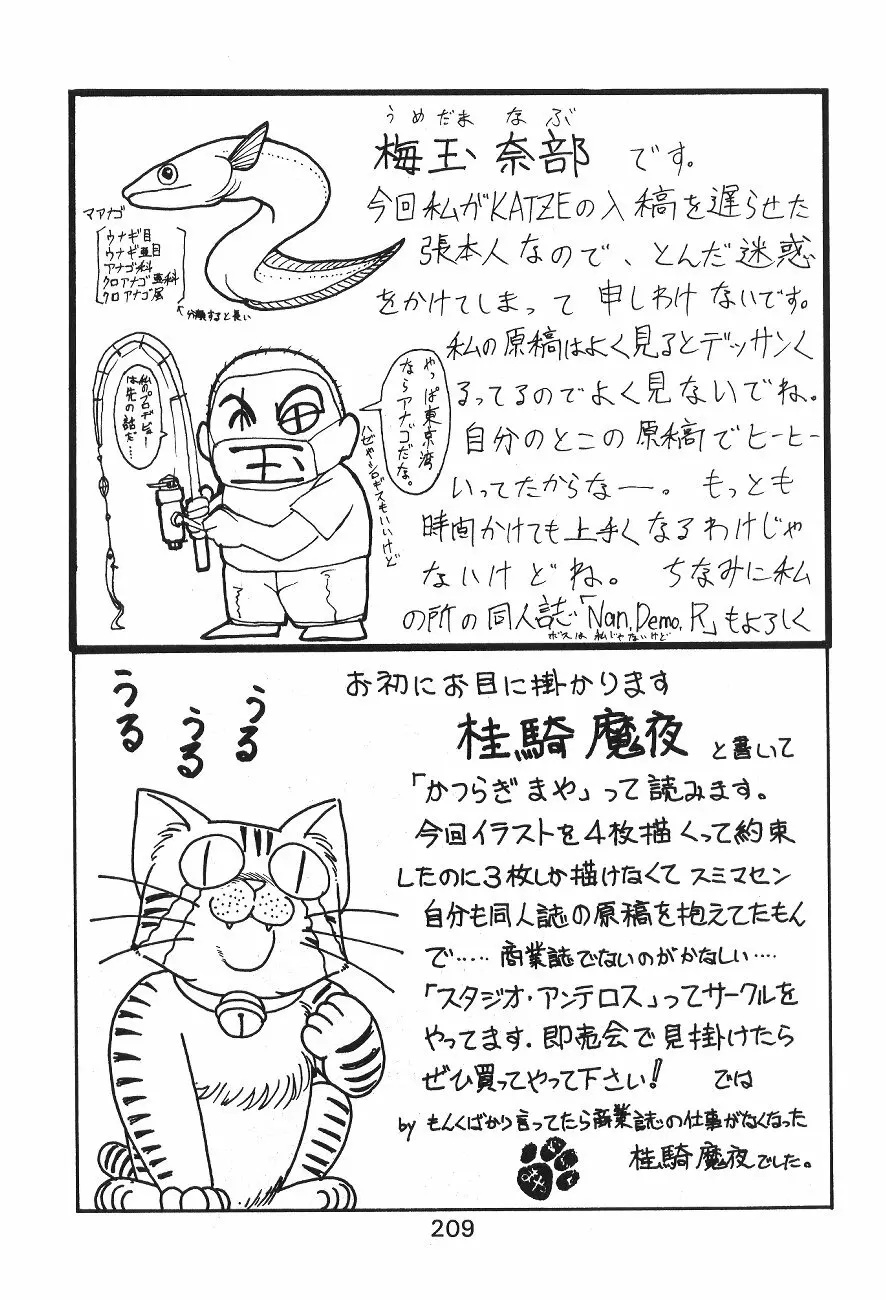 うめだま なぶ
梅玉 奈部 です。
今回私がKATZEの入稿を遅らせた
張本人なので、とんだ迷惑
をかけてしまって申しわけないです。
私の原稿はよく見るとデッサンく
るってるのでよく見ないでね。
自分のとこの原稿でヒーヒー
いってたからなー。もっとも
時間かけても上手くなるわけじゃ
ないけどね。ちなみに私
の所の同人誌「Nan,Demo,R」もよろしく
ボスは私じゃないけど
マアナゴ
ウナギ目
ウナギ亜目
アナゴ科
クロアナゴ亜科
クロアナゴ属
↖分類すると長い
やっぱ東京湾
ならアナゴだな。
ハゼやシロギスもいいけど
私のプロデビュー
は先の話だ…
玉
うる
うる
うる
お初にお目に掛かります
桂騎魔夜 と書いて
「かつらぎまや」って読みます。
今回イラストを4枚描くって約束
したのに3枚しか描けなくてスミマセン
自分も同人誌の原稿を抱えてたもん
で……商業誌でないのがかなしい……
「スタジオ・アンテロス」ってサークルを
やってます.即売会で見掛けたら
ぜひ買ってやって下さい! では
by もんくばかり言ってたら商業誌の仕事がなくなった
桂騎魔夜でした。
209